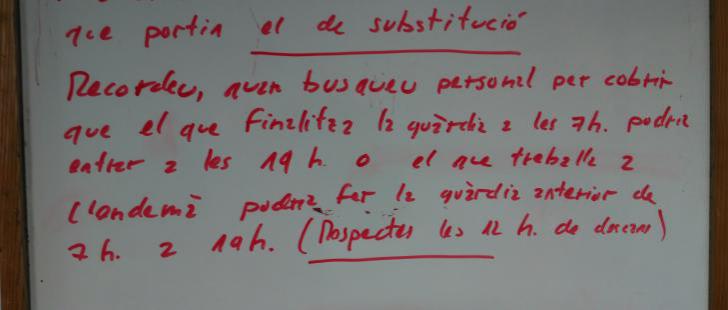 que portin el de substitució
Recordeu, quan busqueu personal per cobrir
que el que finalitza la guàrdia a les 7h. podria
entrar a les 19 h. o el que treballa a
l'endemà podria fer la guàrdia anterior de
7 h. a 19h. (Respectar les 12 h. de descans)